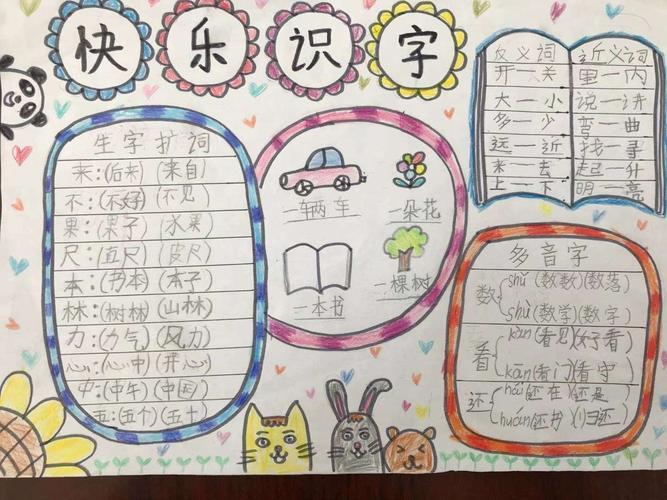 快乐识字
生字扩词
来:(后来)(来自)
不:(不好)(不见)
果:(果子)(水果)
尺:(直尺)(皮尺)
本:(书本)(本子)
林:(树林)(山林)
力:(力气)(风力)
心:(心中)(开心)
中:(中午)(中国)
五:(五个)(五十)
一车两车
一朵花
一本书
一棵树
反义词
开—关
大—小
多—少
远—近
来—去
上—下
近义词
里—内
说—讲
弯—曲
找—寻
起—升
明—亮
多音字
数
shǔ(数数)(数落)
shù(数学)(数字)
看
kàn(看见)(好看)
kān(看门)(看守)
还
hái(还在)(还是)
huán(还书)(归还)